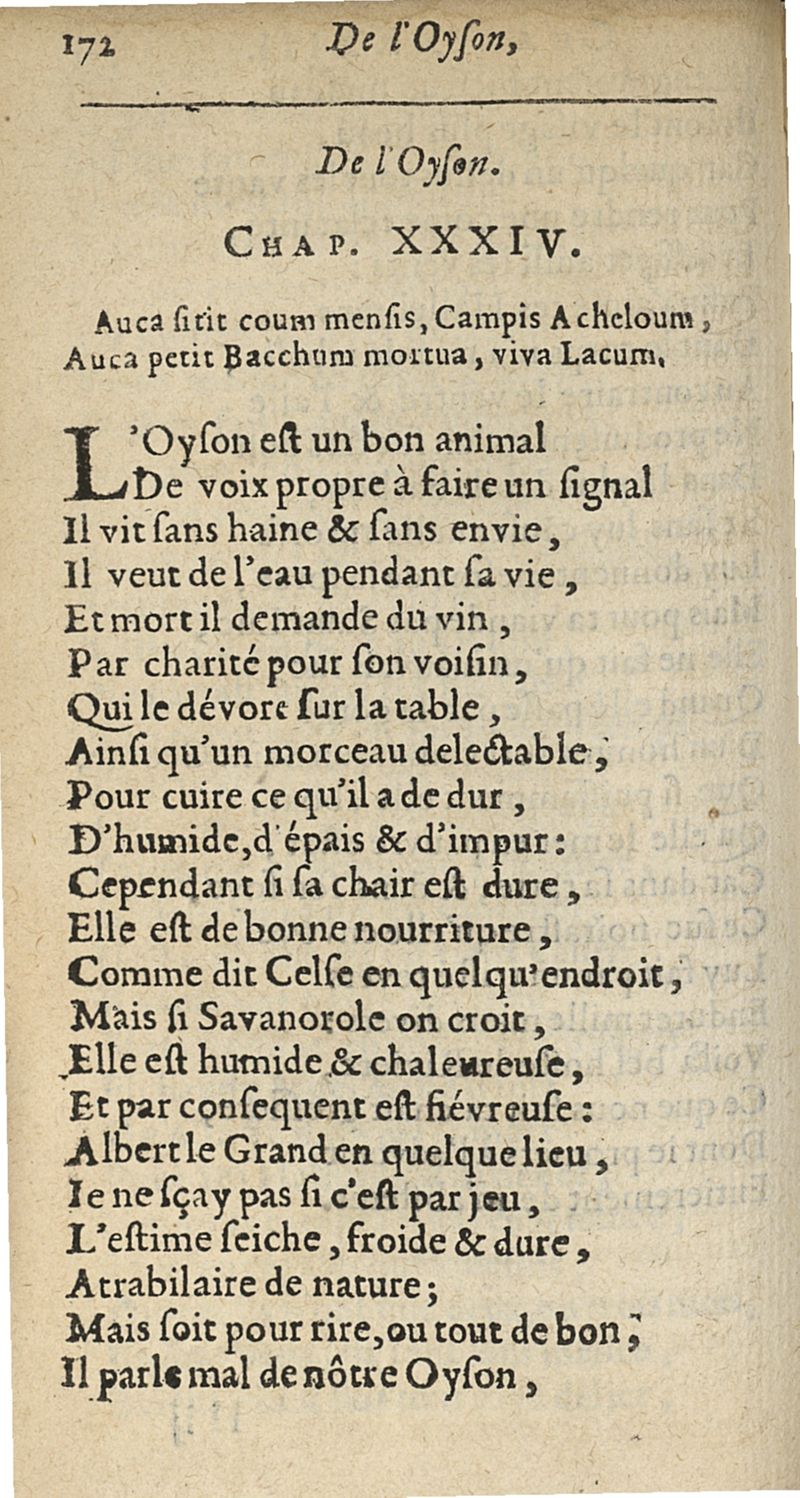 172 De l'Oyſon,
De l'Oyſon.
CHAP. XXXIV.
Auca ſitit coum menſis, Campis Acheloum,
Auca petit Bacchum mortua, viva Lacum.
L'Oyſon eſt un bon animal
De voix propre à faire un ſignal
Il vit ſans haine & ſans envie,
Il veut de l'eau pendant ſa vie,
Et mort il demande du vin,
Par charité pour ſon voiſin,
Qui le dévore ſur la table,
Ainſi qu'un morceau delectable,
Pour cuire ce qu'il a de dur,
D'humide, d'épais & d'impur:
Cependant ſi ſa chair eſt dure,
Elle eſt de bonne nourriture,
Comme dit Celſe en quelqu'endroit,
Mais ſi Savanorole on croit,
Elle eſt humide & chaleureuſe,
Et par conſequent eſt fiévreuſe:
Albert le Grand en quelque lieu,
Ie ne ſçay pas ſi c'eſt par jeu,
L'eſtime ſeiche, froide & dure,
Atrabilaire de nature;
Mais ſoit pour rire, ou tout de bon,
Il parle mal de nôtre Oyſon,